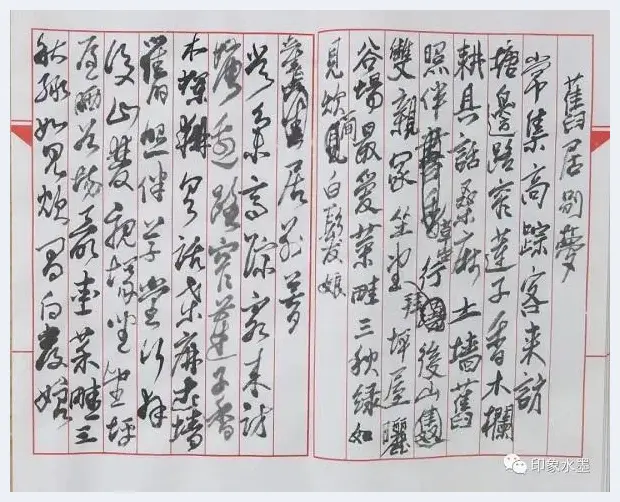 舊居別夢
常集高蹤客来訪
塘邊路窄蓮子香木欄
耕具話桑麻土墻舊
照伴草堂行後山
雙親冢坐堂拜坪屋曬
谷場最愛菜畦三秋緑如
見炊間白髮娘
舊居別夢
常集高蹤客来訪
塘邊路窄蓮子香
木欄耕具話桑麻土墻
舊照伴草堂行拜
後山雙親塚坐堂坪
屋曬谷場最愛菜畦三
秋緑如見炊間白髮娘
印象水墨